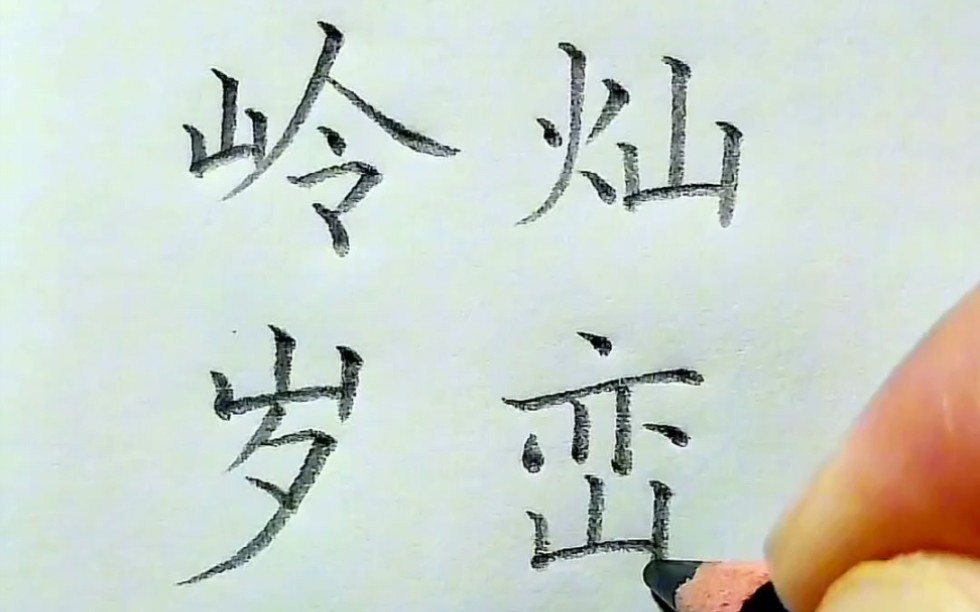 岭灿
岁峦